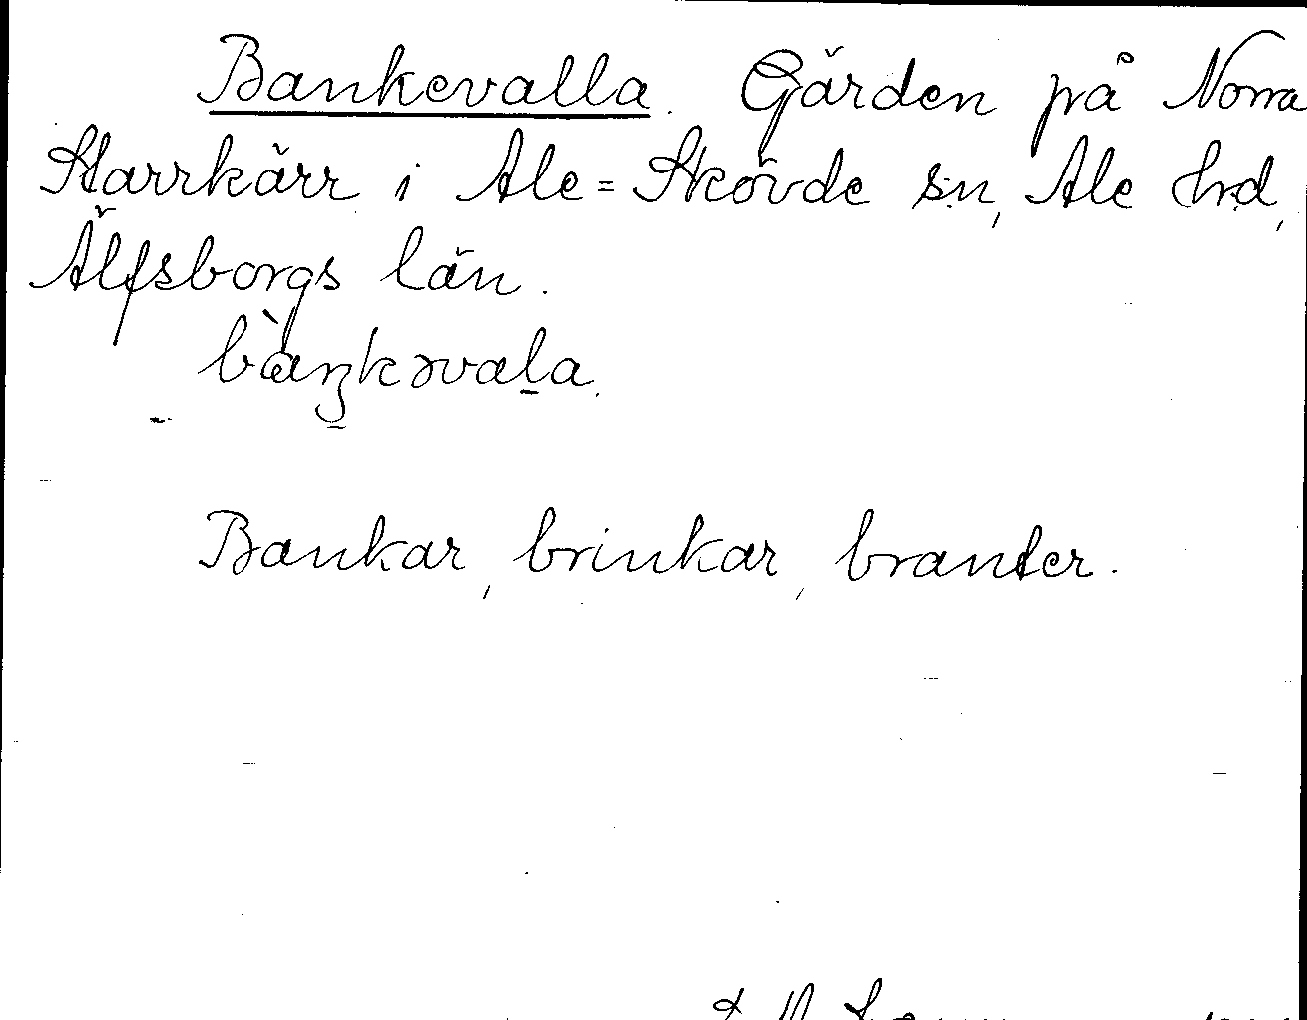 Bankevalla. Gärden på Norra
Starrkärr i Ale=Skövde sn, Ale hrd,
Älfsborgs län.
bàŋkəvaḻa.
Bankar, brinkar, branter.